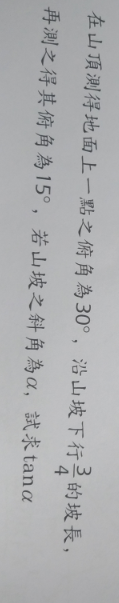 在山頂測得地面上一點之俯角為30°，沿山坡下行3/4的坡長，
再測之得其俯角為15°，若山坡之斜角為α，試求tanα